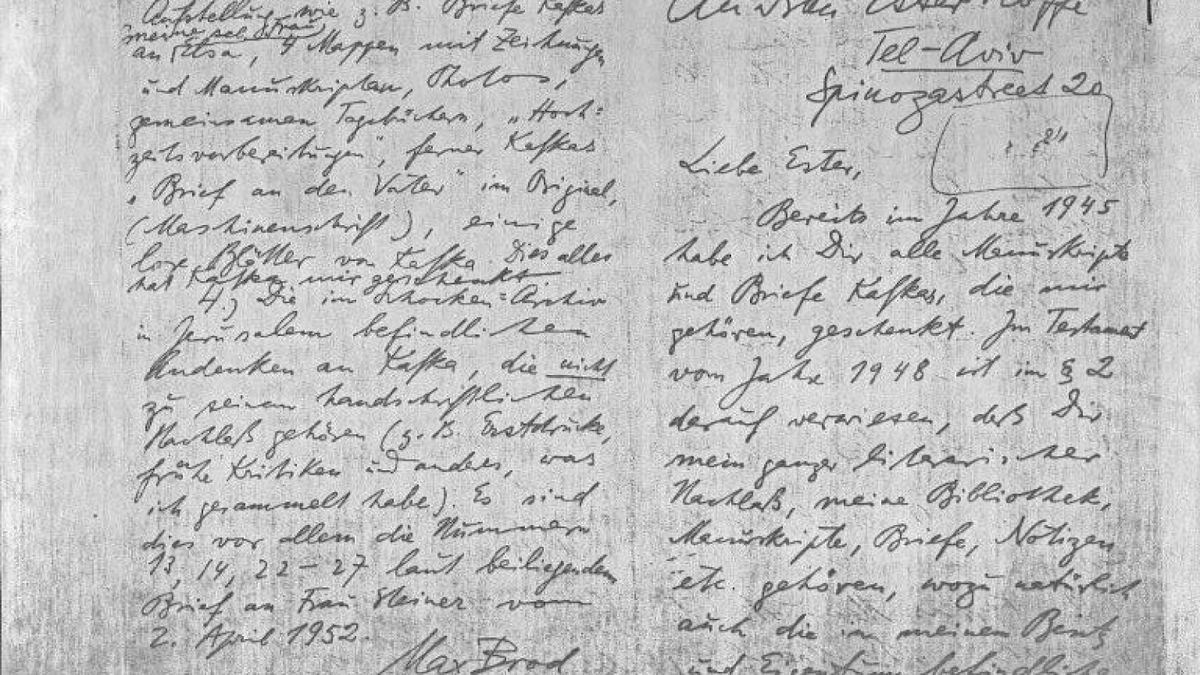 Aufstellung wie z. B. Briefe Kafkas
meine sel. Frau
an Elsa, 4 Mappen mit Zeichnungen
und Manuskripten, Photos,
gemeinsamen Tagebüchern, „Hoch=
zeitsvorbereitungen“, ferner Kafkas
„Brief an den Vater“ im Original,
(Maschinenschrift), einige
lose Blätter von Kafka. Dies alles
hat Kafka mir geschenkt.
4.) Die im Schocken=Archiv
in Jerusalem befindlichen
Andenken an Kafka, die nicht
zu seinem handschriftlichen
Nachlaß gehören (z. B. Erstdrücke,
frühe Kritiken und anderes, was
ich gesammelt habe). Es sind
dies vor allem die Nummern
13, 14, 22–27 laut beiliegendem
Brief an Frau Steiner vom
2. April 1952.
Max Brod
An Ester Hoffe
Tel-Aviv
Spinozastreet 20
Liebe Ester,
Bereits im Jahre 1945
habe ich Dir alle Manuskripte
und Briefe Kafkas, die mir
gehören, geschenkt. Im Testament
vom Jahr 1948 ist im § 2
darauf verwiesen, daß Dir
mein ganzer literarischer
Nachlaß, meine Bibliothek,
Manuskripte, Briefe, Notizen
etc. gehören, wozu natürlich
auch die in meinem Besitz
und Eigentum befindliche